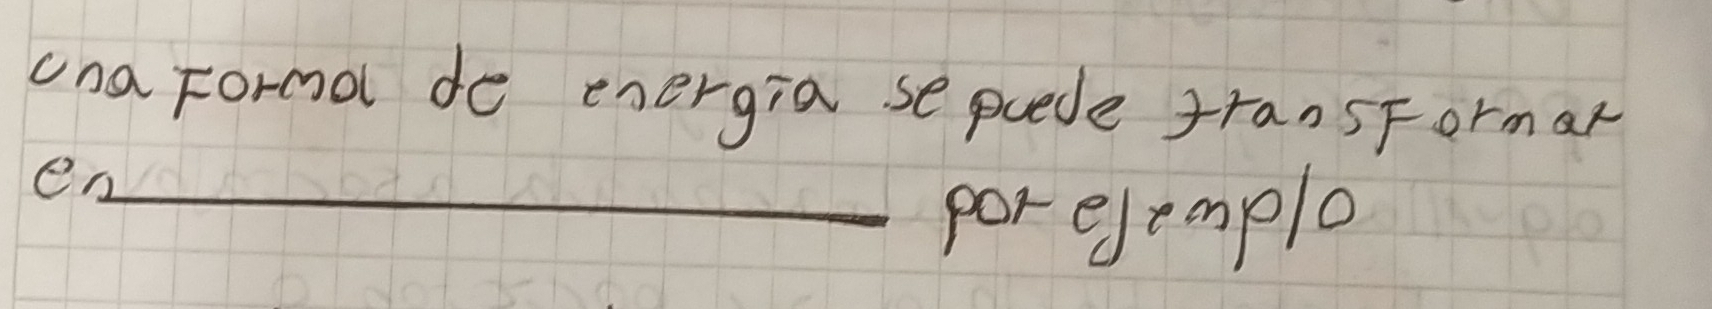 una Forma de energía se puede transFormar
en__________ por ejemplo